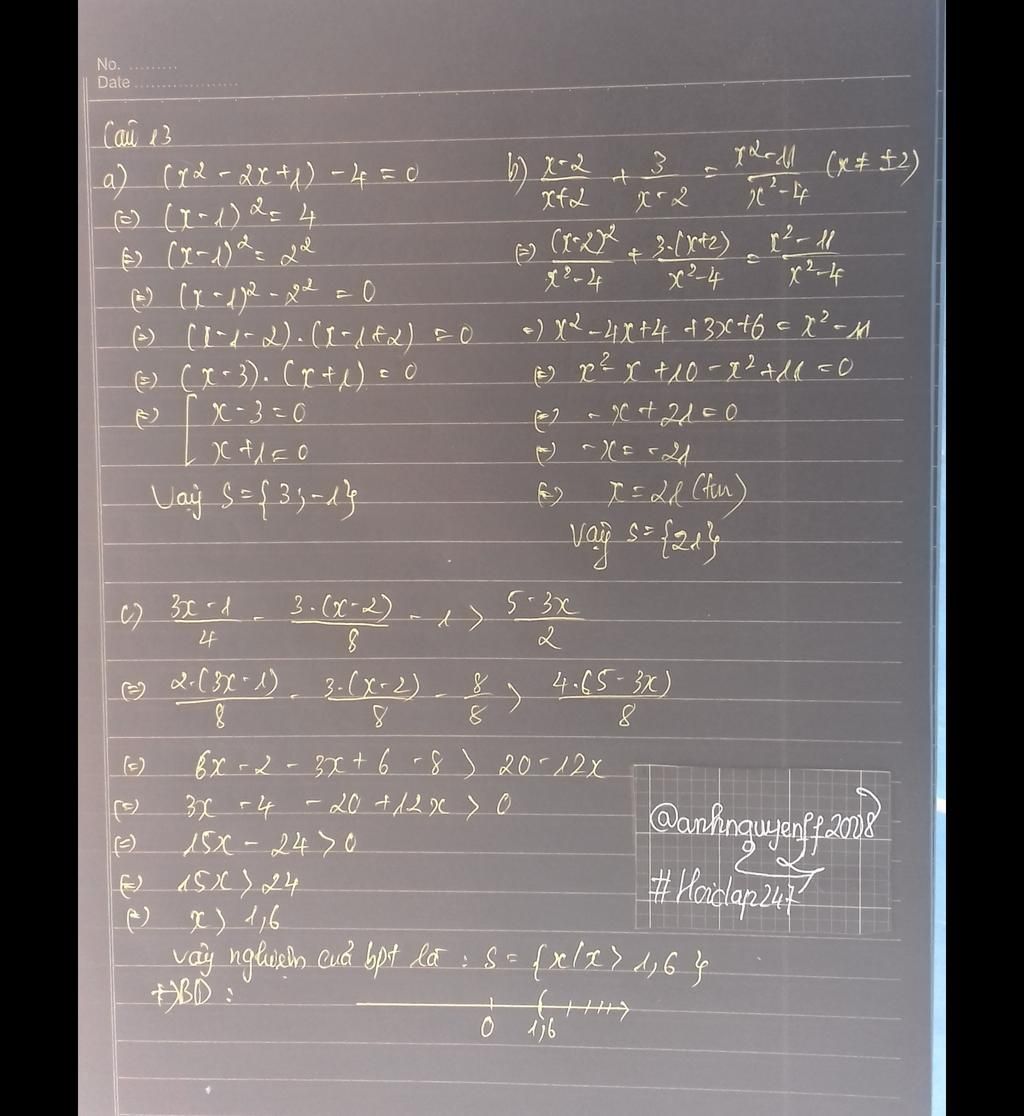 No. .........
Date ...................
Câu 13
a) (x² - 2x + 1) - 4 = 0
(=) (x - 1)² = 4
(=) (x - 1)² = 2²
(=) (x - 1)² - 2² = 0
(=) (x - 1 - 2) . (x - 1 + 2) = 0
(=) (x - 3) . (x + 1) = 0
(=) [ x - 3 = 0
x + 1 = 0
Vậy S = {3; -1}
b) (x - 2)/(x + 2) + 3/(x - 2) = (x² - 11)/(x² - 4) (x ≠ ±2)
(=) (x - 2)²/(x² - 4) + 3.(x + 2)/(x² - 4) = (x² - 11)/(x² - 4)
=) x² - 4x + 4 + 3x + 6 = x² - 11
(=) x² - x + 10 - x² + 11 = 0
(=) - x + 21 = 0
(=) - x = - 21
(=) x = 21 (tm)
Vậy S = {21}
c) (3x - 1)/4 - 3.(x - 2)/8 - 1 > (5 - 3x)/2
(=) 2.(3x - 1)/8 - 3.(x - 2)/8 - 8/8 > 4.(5 - 3x)/8
(=) 6x - 2 - 3x + 6 - 8 > 20 - 12x
(=) 3x - 4 - 20 + 12x > 0
(=) 15x - 24 > 0
(=) 15x > 24
(=) x > 1,6
Vậy nghiệm của bpt là : S = {x/x > 1,6}
+) BD :
0 1,6
@anhnguyenff2008
#Hoidap247